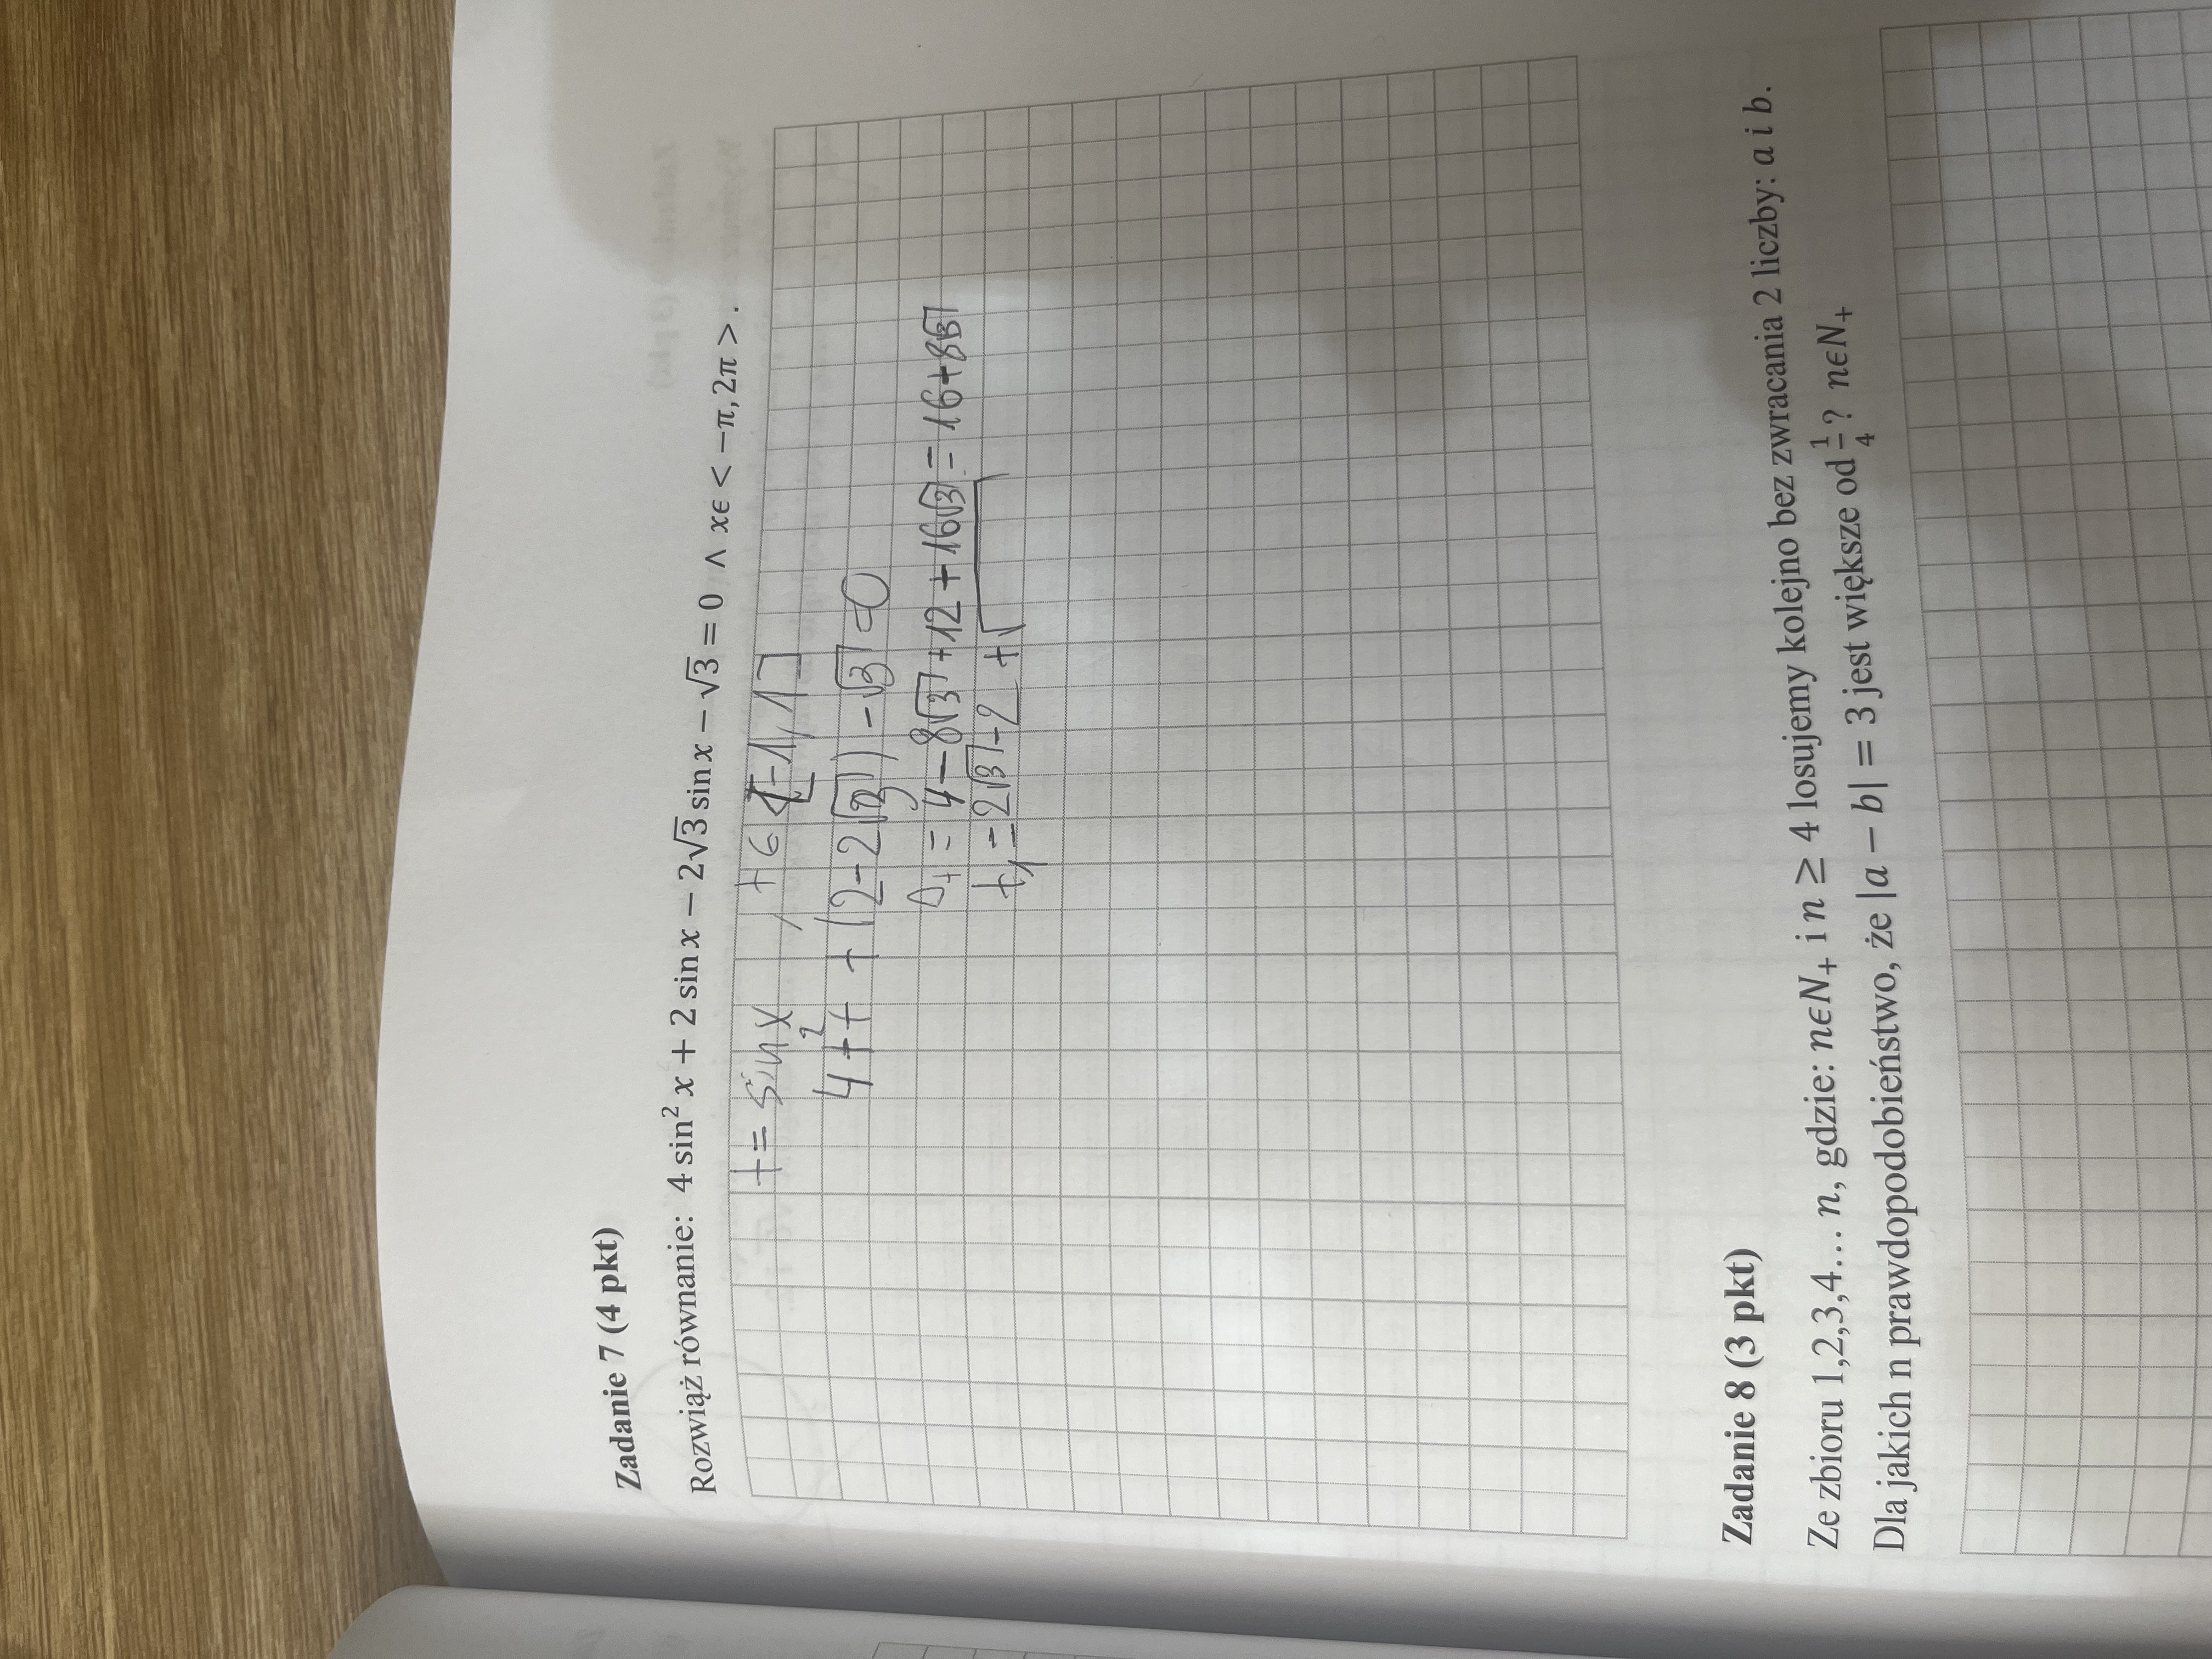 Zadanie 7 (4 pkt)
Rozwiąż równanie: 4 sin² x + 2 sin x − 2√3 sin x − √3 = 0 ∧ xϵ < −π, 2π >.
t = sin x , t ∈ [-1, 1]
4t² + (2-2√3) - √3 = 0
Δt = 4 - 8√3 + 12 + 16√3 = 16 + 8√3
t₁ = 2√3 - 2 + √
Zadanie 8 (3 pkt)
Ze zbioru 1,2,3,4… n, gdzie: nϵN₊ i n ≥ 4 losujemy kolejno bez zwracania 2 liczby: a i b.
Dla jakich n prawdopodobieństwo, że |a − b| = 3 jest większe od 1/4? nϵN₊